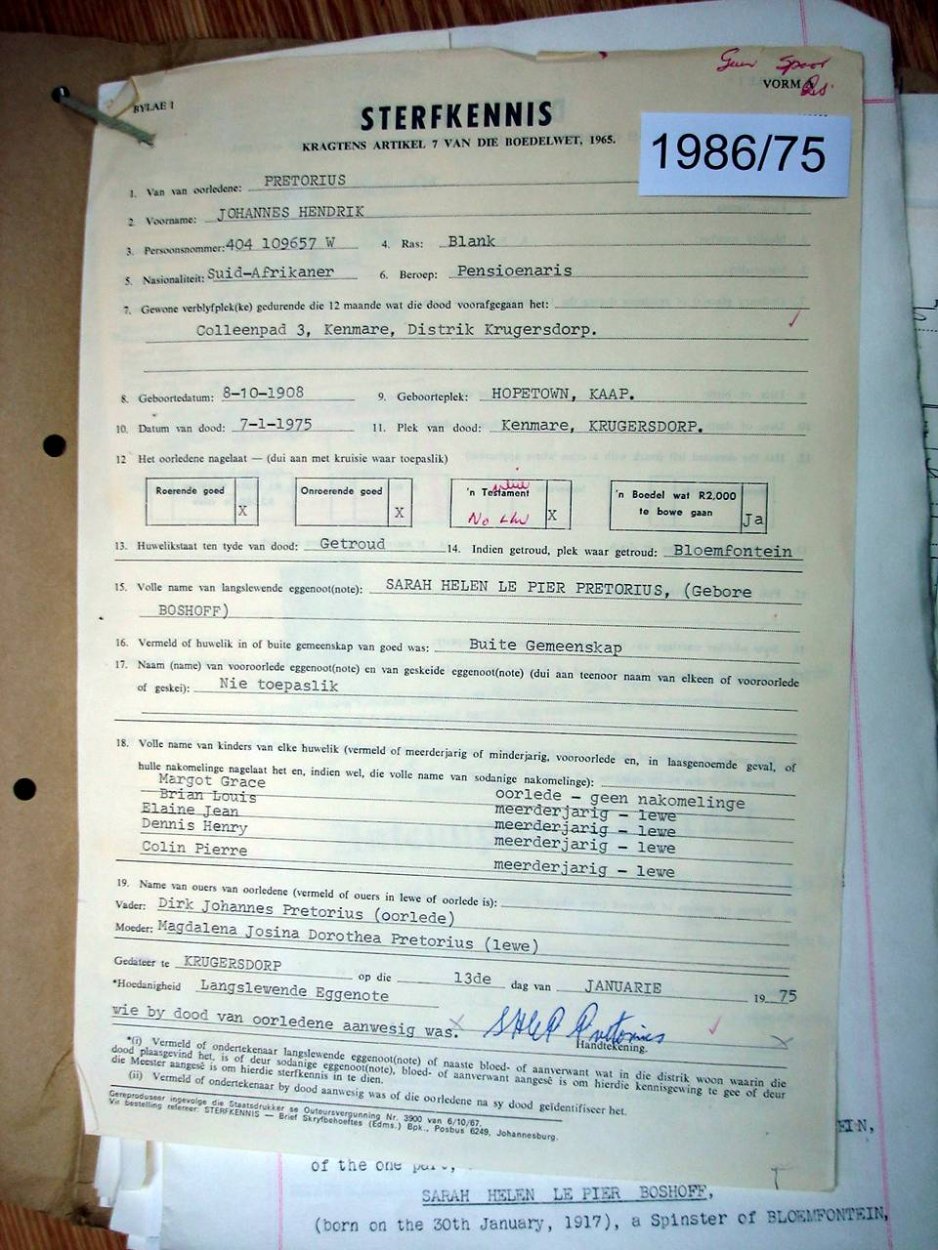 Geen Spoor
BYLAE 1
VORM A
STERFKENNIS
KRAGTENS ARTIKEL 7 VAN DIE BOEDELWET, 1965.
1986/75
1. Van van oorledene: PRETORIUS
2. Voorname: JOHANNES HENDRIK
3. Persoonsnommer: 404 109657 W 4. Ras: Blank
5. Nasionaliteit: Suid-Afrikaner 6. Beroep: Pensioenaris
7. Gewone verblyfplek(ke) gedurende die 12 maande wat die dood voorafgegaan het:
Colleenpad 3, Kenmare, Distrik Krugersdorp.
8. Geboortedatum: 8-10-1908 9. Geboorteplek: HOPETOWN, KAAP.
10. Datum van dood: 7-1-1975 11. Plek van dood: Kenmare, KRUGERSDORP.
12 Het oorledene nagelaat — (dui aan met kruisie waar toepaslik)
Roerende goed X Onroerende goed X 'n Testament No X 'n Boedel wat R2,000 te bowe gaan Ja
13. Huwelikstaat ten tyde van dood: Getroud 14. Indien getroud, plek waar getroud: Bloemfontein
15. Volle name van langslewende eggenoot(note): SARAH HELEN LE PIER PRETORIUS, (Gebore
BOSHOFF)
16. Vermeld of huwelik in of buite gemeenskap van goed was: Buite Gemeenskap
17. Naam (name) van vooroorlede eggenoot(note) en van geskeide eggenoot(note) (dui aan teenoor naam van elkeen of vooroorlede
of geskei): Nie toepaslik
18. Volle name van kinders van elke huwelik (vermeld of meerderjarig of minderjarig, vooroorlede en, in laasgenoemde geval, of
hulle nakomelinge nagelaat het en, indien wel, die volle name van sodanige nakomelinge):
Margot Grace oorlede - geen nakomelinge
Brian Louis meerderjarig - lewe
Elaine Jean meerderjarig - lewe
Dennis Henry meerderjarig - lewe
Colin Pierre meerderjarig - lewe
19. Name van ouers van oorledene (vermeld of ouers in lewe of oorlede is):
Vader: Dirk Johannes Pretorius (oorlede)
Moeder: Magdalena Josina Dorothea Pretorius (lewe)
Gedateer te KRUGERSDORP op die 13de dag van JANUARIE 19 75
*Hoedanigheid Langslewende Eggenote
wie by dood van oorledene aanwesig was. X SHLP Pretorius X
Handtekening.
*(i) Vermeld of ondertekenaar langslewende eggenoot(note) of naaste bloed- of aanverwant wat in die distrik woon waarin die
dood plaasgevind het, is of deur sodanige eggenoot(note), bloed- of aanverwant aangesê is om hierdie kennisgewing te gee of deur
die Meester aangesê is om hierdie sterfkennis in te dien.
(ii) Vermeld of ondertekenaar by dood aanwesig was of die oorledene na sy dood geïdentifiseer het.
Gereproduseer ingevolge die Staatsdrukker se Outeursvergunning Nr. 3900 van 6/10/67.
Vir bestelling refereer: STERFKENNIS — Brief Skryfbehoeftes (Edms.) Bpk., Posbus 6249, Johannesburg.
EIN,
of the one part,
SARAH HELEN LE PIER BOSHOFF,
(born on the 30th January, 1917), a Spinster of BLOEMFONTEIN,